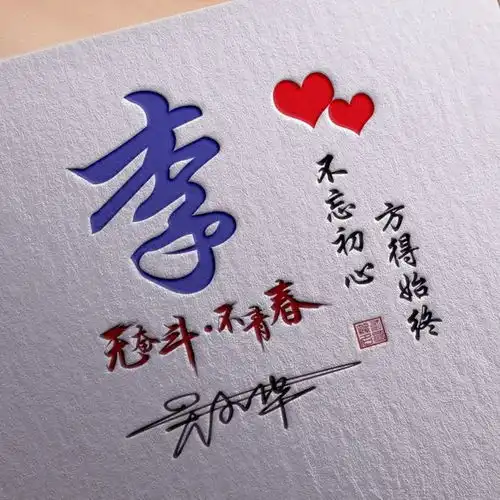 李
不忘初心
方得始终
无奋斗·不青春